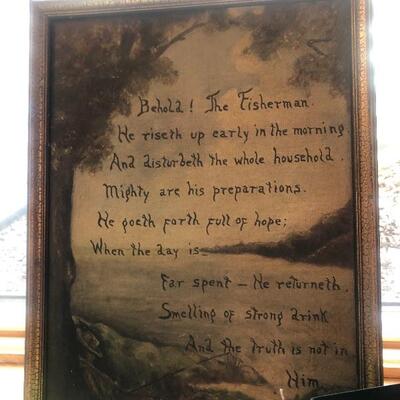 Behold! The Fisherman.
He riseth up early in the morning.
And disturbeth the whole household.
Mighty are his preparations.
He goeth forth full of hope;
When the day is
Far spent – He returneth.
Smelling of strong drink
And the truth is not in
Him.